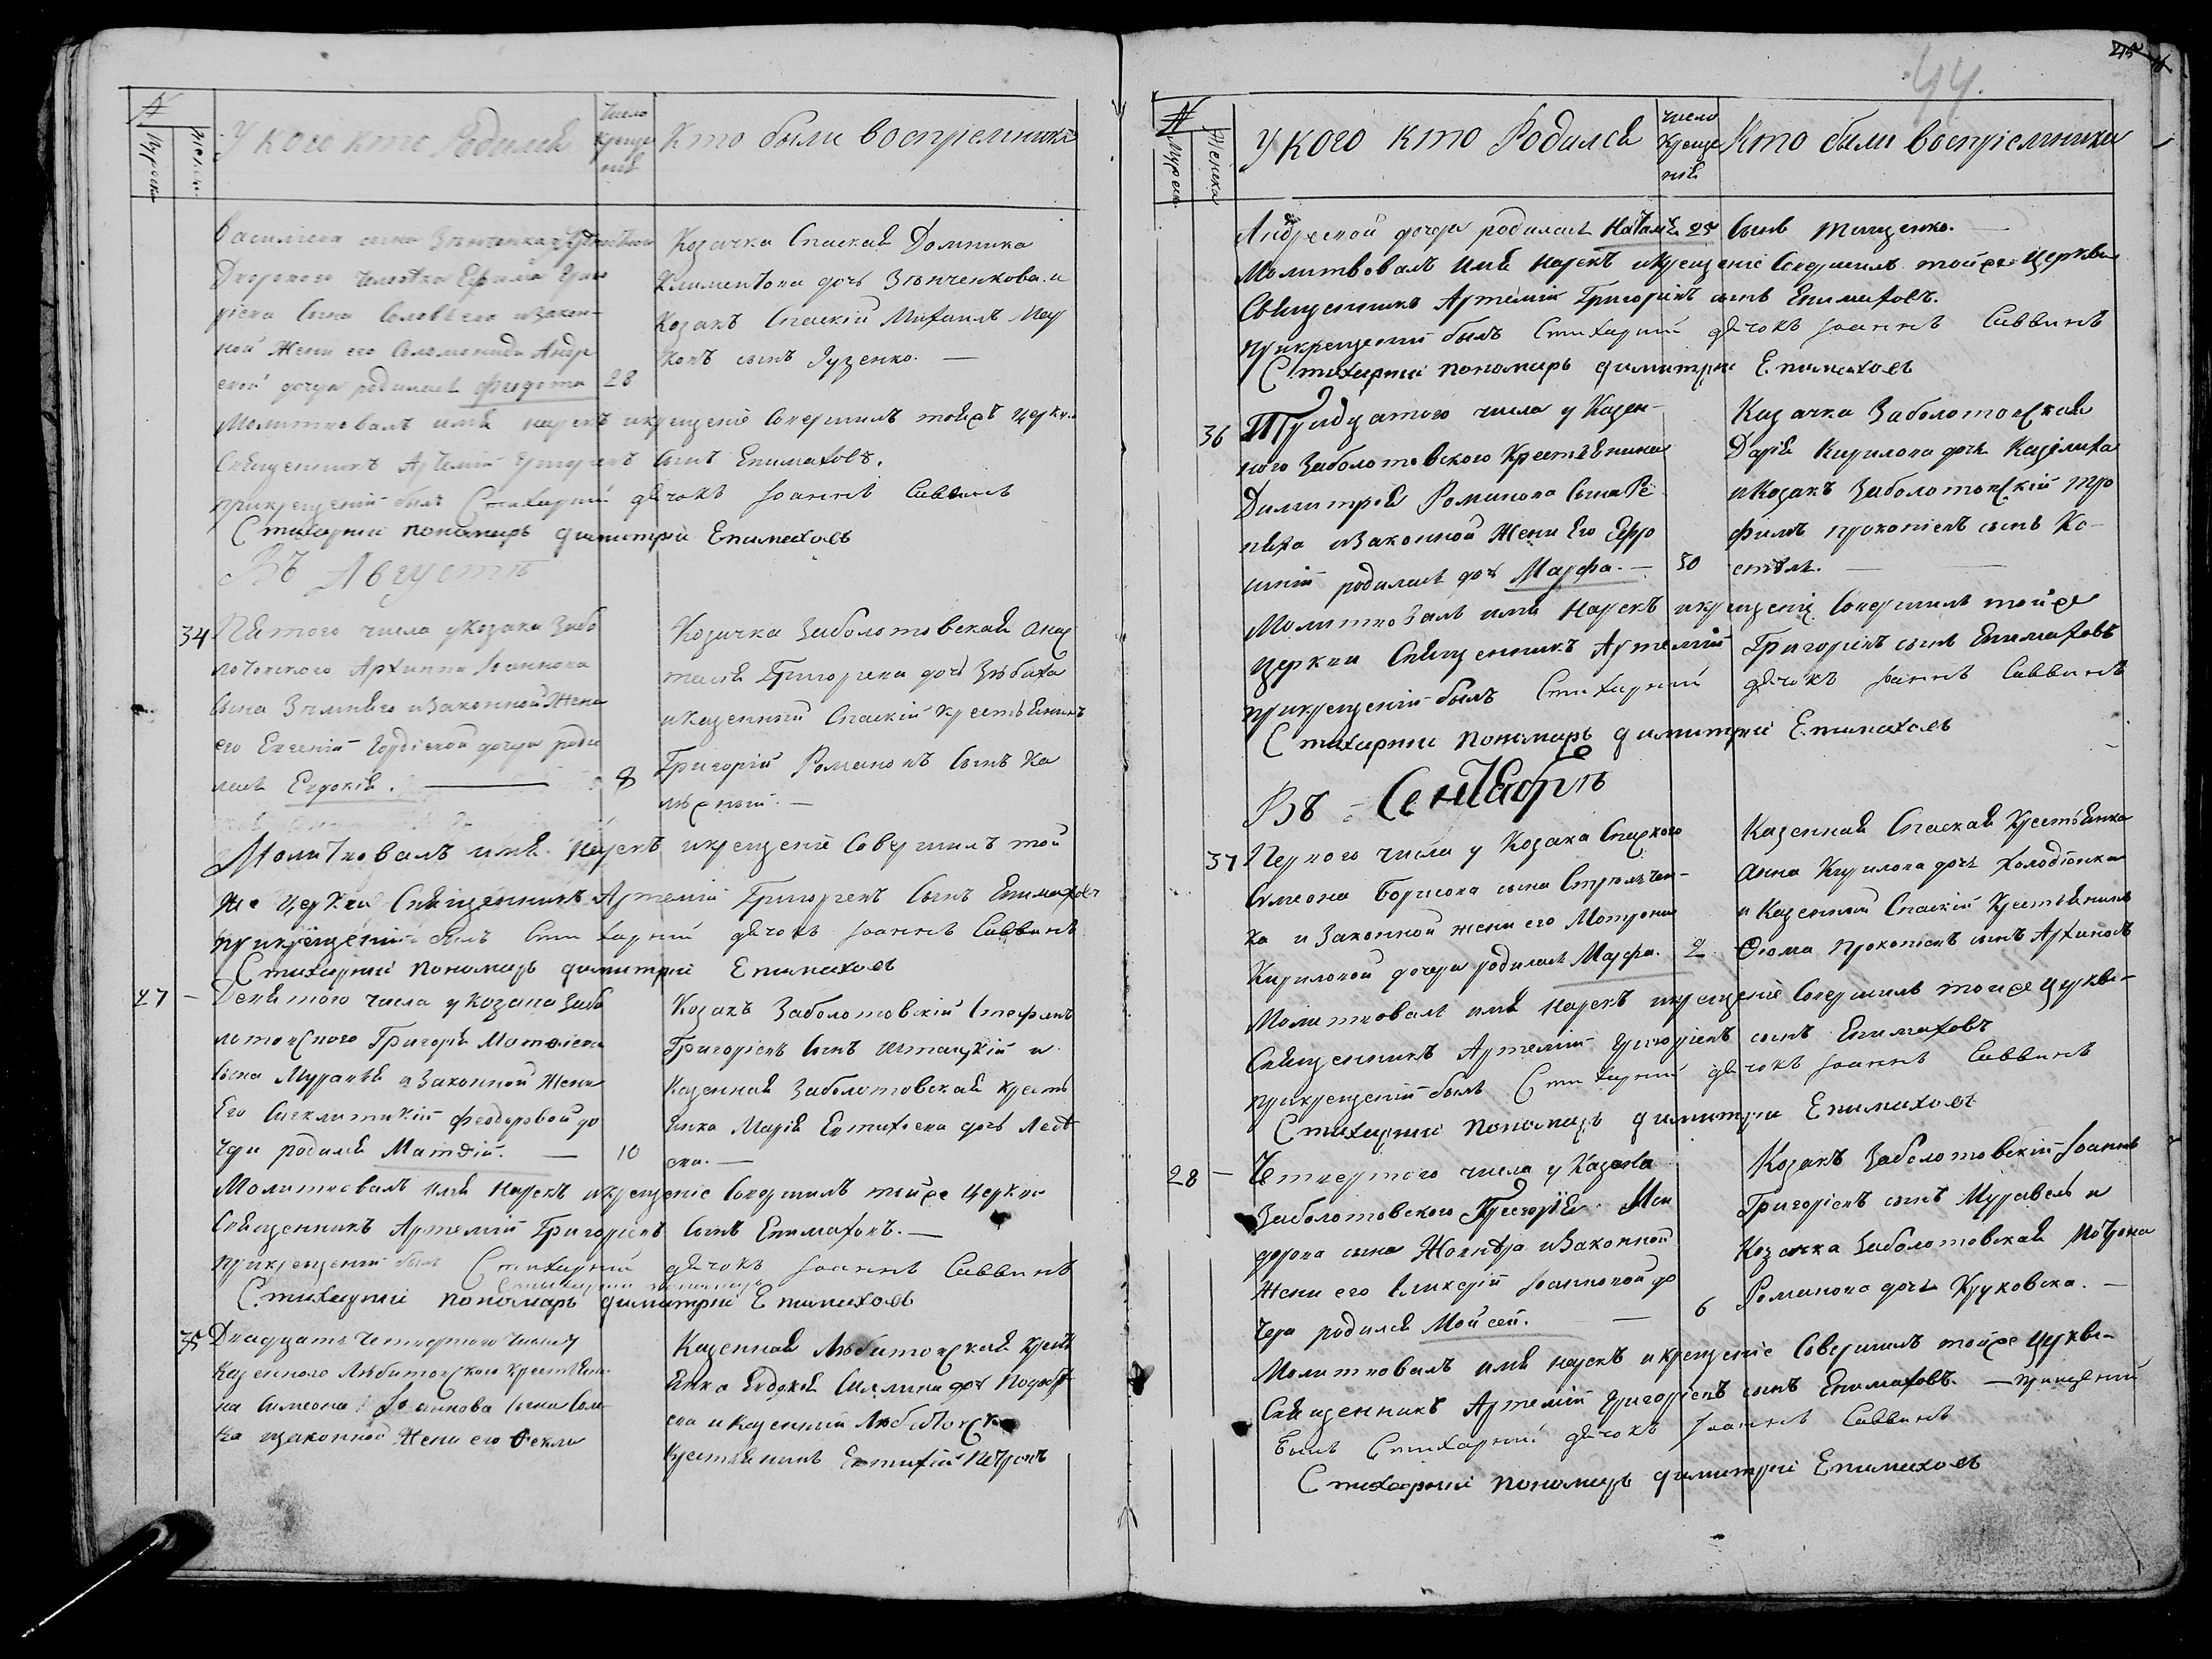 44.
№
Мужеска
Женска
У кого кто Родился
Число
Креще
нія
Кто были воспріемники
Дворского человека Ефима Григо
ріева Сына Соловьева изакон-
ной Жены его Соломонида Андре
евой дочери родилась Феодота 28
Козачка Спаская Домника
Климентова дочь Зѣнченкова и
Козакъ Спаскій Михаилъ Мар
ковъ сынъ Гузенко. —
Молитвовалъ имя нарекъ икрещеніе Совершилъ тойжъ церкви
Священникъ Артемій Григоріевъ сынъ Епимаховъ.
прикрещеніи былъ Стихарный дячокъ Іоаннъ Саввинъ
Стихарній пономарь димитрій Епимаховъ
Въ Августѣ
34 Пятого числа уКозака Забо
лотовского Архиппа Іоаннова
Сына Зимнѣго изаконной Жены
его Евгеніи Гордіевой дочери роди
лась Евдокія. — 8
Козачка Заболотовская Анас
тасія Григорьева дочь Зюбиха
иказенный Спаскій крестьянинъ
Григорій Романовъ Сынъ Ка
лѣжный. —
Молитвовалъ имя нарекъ икрещеніе Совершилъ той
же Церкви Священникъ Артемій Григорьевъ Сынъ Епимаховъ
прикрещеніи былъ Стихарный дячокъ Іоаннъ Саввинъ
Стихарній пономарь димитрій Епимаховъ
27 — Девятого числа укозака Забо
лотовского Григорія Матвіева
Сына Муравья изаконной Жены
Его Синклитикіи Феодоровой до
чери родился Матѳій. — 10
Козакъ Заболотовскій Стефанъ
Григоріевъ Сынъ и
Казенная Заболотовская кресть
янка Марія Евтихіева дочь Лебе
ева. —
Молитвовалъ имя нарекъ икрещеніе Совершилъ тойже Церкви
Священникъ Артемій Григоріевъ Сынъ Епимаховъ. —
прикрещеніи былъ Стихарный дячокъ Іоаннъ Саввинъ
Стихарній пономарь димитрій Епимаховъ
35 Двадцать Четвертого Числа у
Казенного Любитовского Крестьяни
на Симеона Іоаннова Сына
изаконной Жены его Ѳеклы
Казенная Любитовская Кресть
янка Евдокія дочь
ева иказенный Любитовскій
Крестьянинъ Евтихій Петровъ
№
Мужеск.
Женска
У кого кто Родился
Число
Креще
нія
Кто были воспріемники
Андреевой дочери родилась Наталія 25 Сынъ Тищенко.
Молитвовалъ имя нарекъ икрещеніе Совершилъ тойже Церкви
Священникъ Артемій Григоріевъ сынъ Епимаховъ.
прикрещеніи былъ Стихарный дячокъ Іоаннъ Саввинъ
Стихарній пономарь димитрій Епимаховъ
36 Тридцатого числа у Казен-
ного Заболотовского Крестьянина
Димитрія Романова Сына Ре
пѣха изаконной Жены Его Евфро
синіи родилась дочь Марфа. — 30
Казачка Заболотовская
Дарія Кирилова дочь Кизимиха
иКозакъ Заболотовскій Тро
фимъ прокопіевъ сынъ Ко-
стѣль. —
Молитвовалъ имя нарекъ икрещеніе Совершилъ тойже
Церкви Священникъ Артемій Григоріевъ сынъ Епимаховъ
прикрещеніи былъ Стихарный дячокъ Іоаннъ Саввинъ
Стихарній пономарь димитрій Епимаховъ
Въ Сентябрѣ
37 Первого числа у Козака Спаского
Симеона Борисова сына Стрѣльчен-
ка и Законной жены его Мотроны
Кириловой дочери родилась Марфа. 2
Казенная Спаская Крестьянка
Анна Кирилова дочь Холодіонка
и Казенный Спаскій Крестьянинъ
Ѳома прокопіевъ сынъ Архиповъ
Молитвовалъ имя нарекъ икрещеніе Совершилъ тойже Церкви
Священникъ Артемій Григоріевъ сынъ Епимаховъ
прикрещеніи былъ Стихарный дячокъ Іоаннъ Саввинъ
Стихарній пономарь димитрій Епимаховъ
28 — Четвертого числа у Казака
Заболотовского Григорія Иси
дорова сына изаконной
Жены его Гликеріи Іоанновой до
чери родился Мойсей. — 6
Козакъ Заболотовскій Іоаннъ
Григоріевъ сынъ Муравель и
Козачка Заболотовская Мотрона
Романова дочь Круковска. —
Молитвовалъ имя нарекъ икрещеніе Совершилъ тойже Церкви
Священникъ Артемій Григоріевъ сынъ Епимаховъ. — прикрещеніи
былъ Стихарный дячокъ Іоаннъ Саввинъ
Стихарній пономарь димитрій Епимаховъ